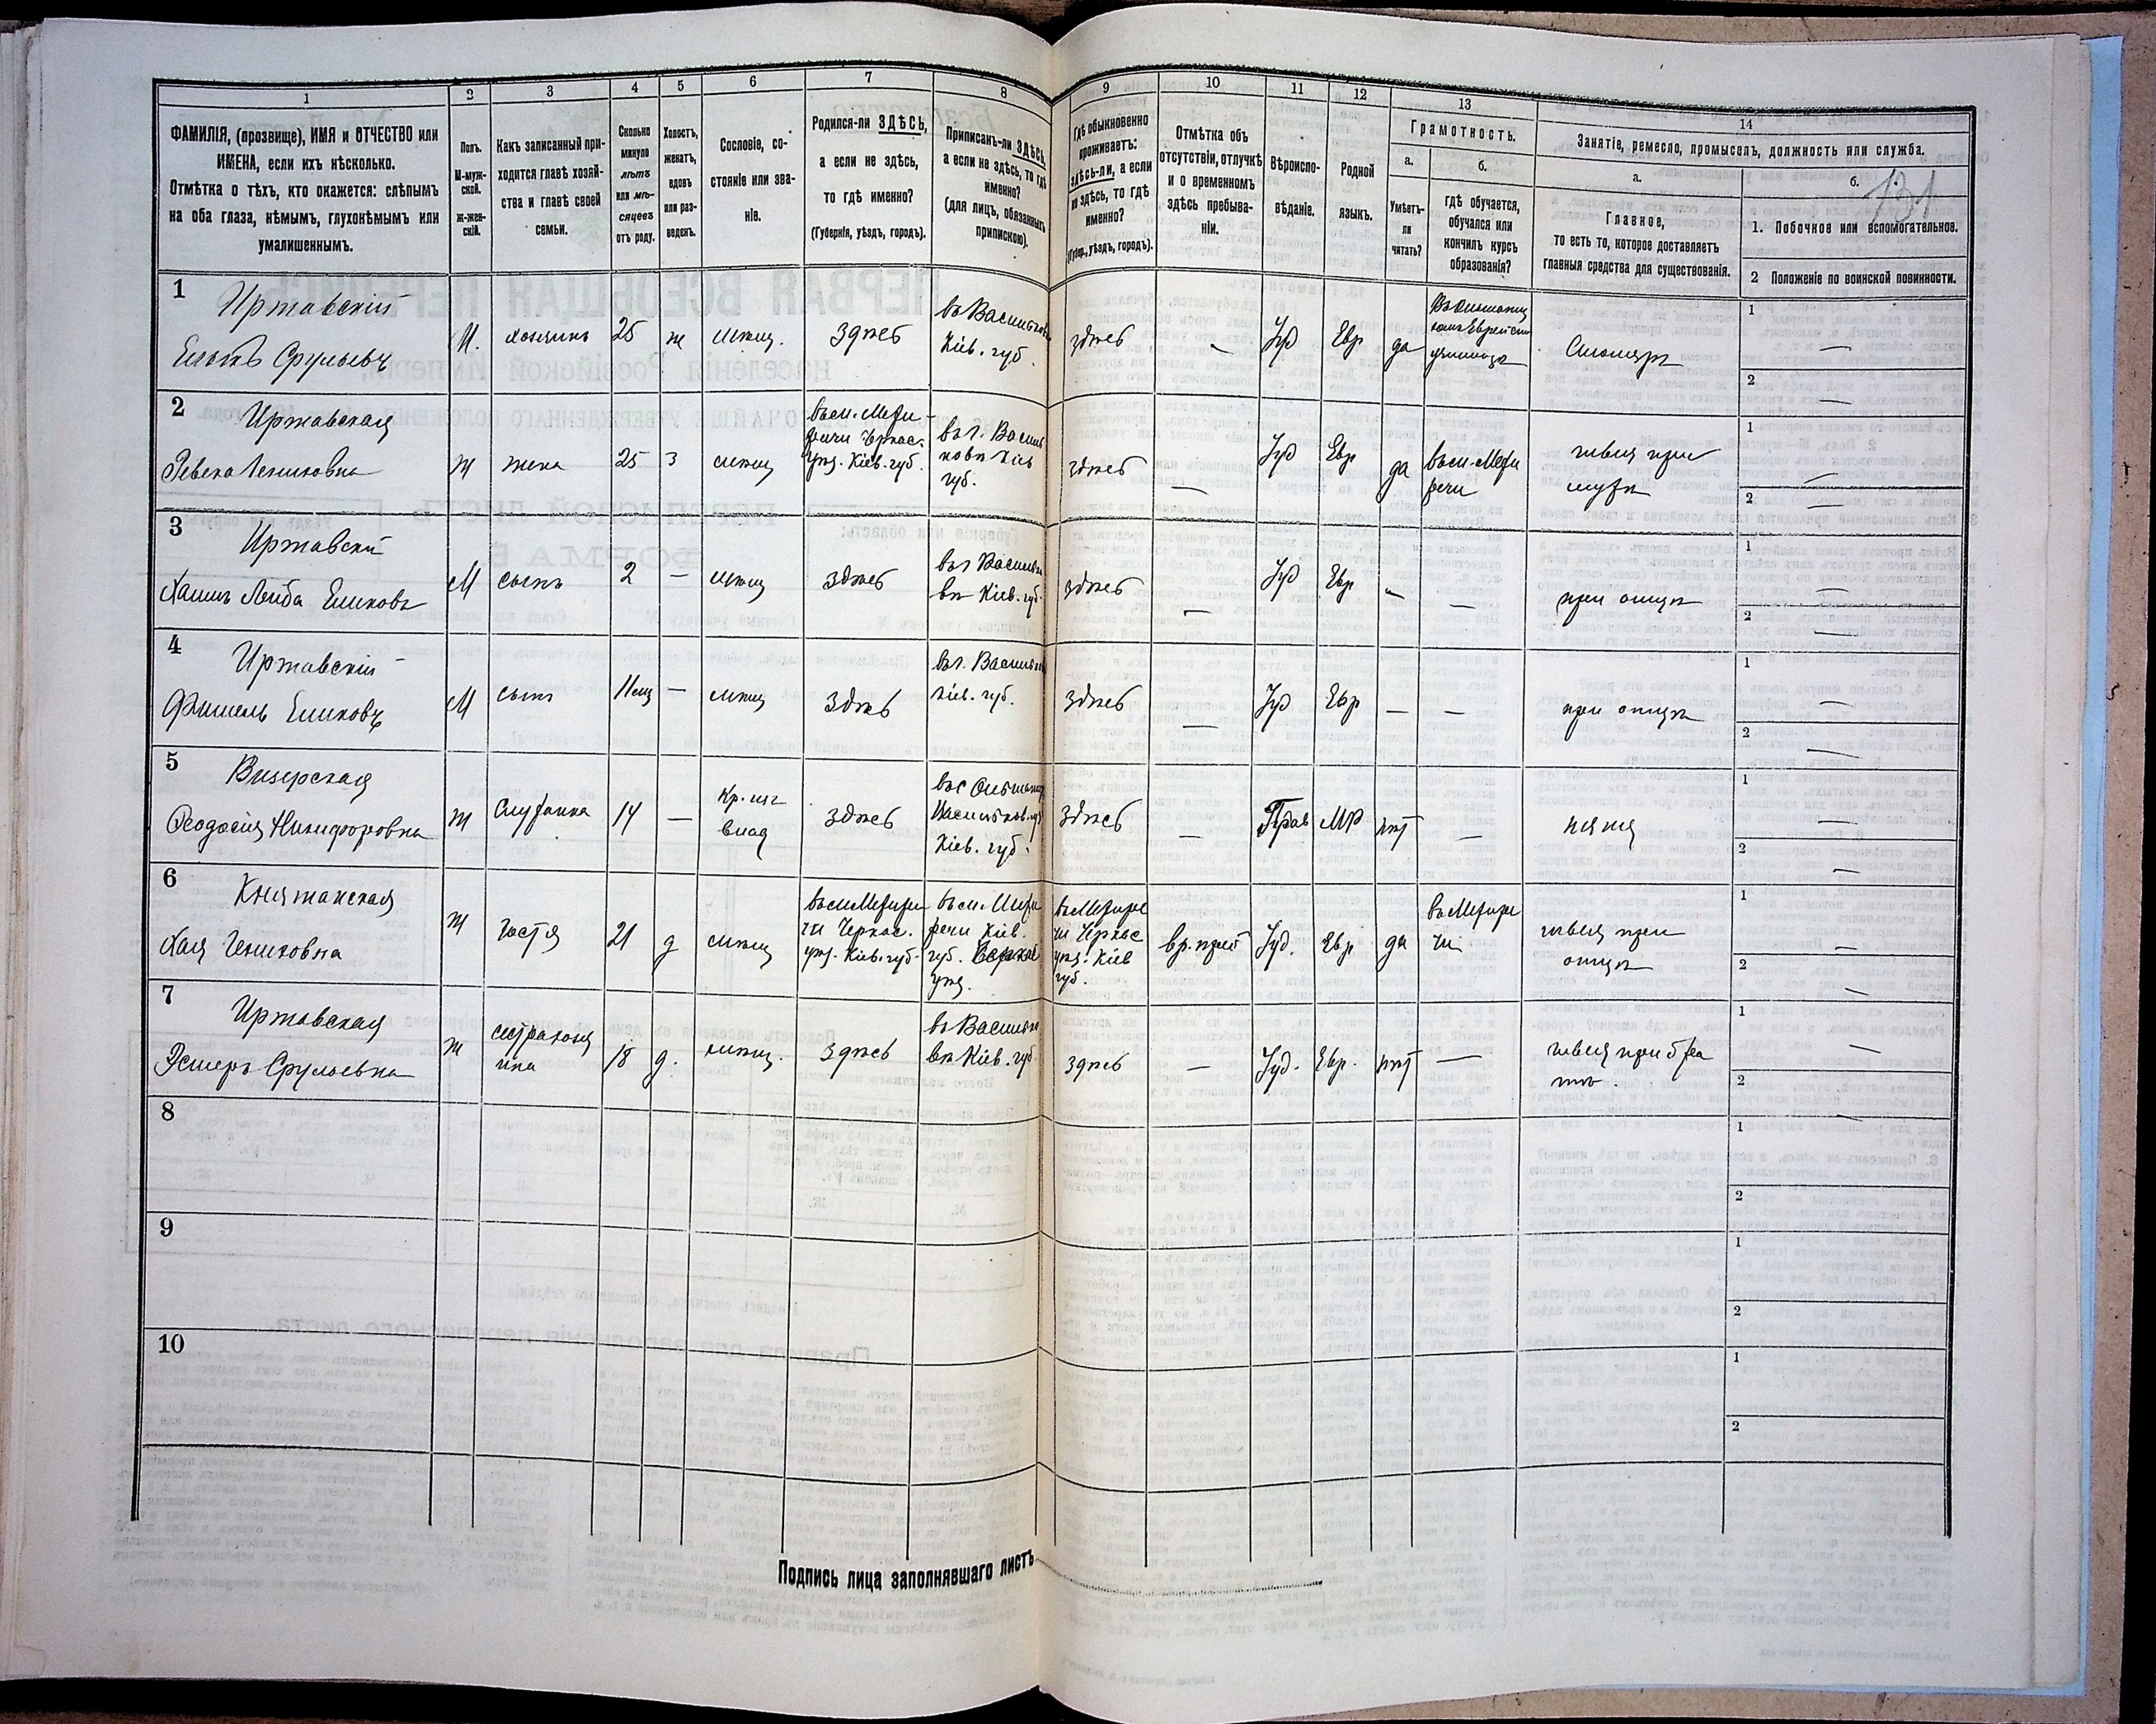 1 2 3 4 5 6 7 8 9 10 11 12 13 14
ФАМИЛІЯ, (прозвище), ИМЯ и ОТЧЕСТВО или
ИМЕНА, если ихъ нѣсколько.
Отмѣтка о тѣхъ, кто окажется: слѣпымъ
на оба глаза, нѣмымъ, глухонѣмымъ или
умалишеннымъ.
Полъ.
М-муж-
ской.
Ж-жен-
скій.
Какъ записанный при-
ходится главѣ хозяй-
ства и главѣ своей
семьи.
Сколько
минуло
лѣтъ
или мѣ-
сяцевъ
отъ роду.
Холостъ,
женатъ,
вдовъ
или раз-
веденъ.
Сословіе, со-
стояніе или зва-
ніе.
Родился-ли ЗДѢСЬ,
а если не здѣсь,
то гдѣ именно?
(Губернія, уѣздъ, городъ).
Приписанъ-ли ЗДѢСЬ,
а если не здѣсь, то гдѣ
именно?
(для лицъ, обязанныхъ
припискою).
Гдѣ обыкновенно
проживаетъ:
здѣсь-ли, а если
не здѣсь, то гдѣ
именно?
(Губер., уѣздъ, городъ).
Отмѣтка объ
отсутствіи, отлучкѣ
и о временномъ
здѣсь пребыва-
ніи.
Вѣроиспо-
вѣданіе.
Родной
языкъ.
Грамотность.
а.
Умѣетъ-
ли
читать?
б.
гдѣ обучается,
обучался или
кончилъ курсъ
образованія?
Занятіе, ремесло, промыселъ, должность или служба.
а.
Главное,
то есть то, которое доставляетъ
главныя средства для существованія.
б.
131
1. Побочное или вспомогательное.
2 Положеніе по воинской повинности.
1
Иржавскій
Срульевъ
М.
хозяинъ
25
ж
мѣщ.
здѣсь
въ Васильков
Кіев. губ.
здѣсь
—
Іуд
Евр
да
Столяръ
1 —
2 —
2
Иржавская
Ревека
ж
жена
25
з
мѣщ
въ м. Межи-
речи Черкас.
уѣз. Кіев. губ.
въ г. Василь
ковѣ Кіев
губ.
здѣсь
—
Іуд
Евр
да
въ м. Межи
речи
швея при
мужѣ
1 —
2 —
3
Иржавскій
Хаимъ Лейба
М
сынъ
2
—
мѣщ
здѣсь
въ г Василько
вѣ Кіев. губ.
здѣсь
—
Іуд
Евр
—
—
при отцѣ
1 —
2 —
4
Иржавскій
Фишель
М
сынъ
11 мц
—
мѣщ
здѣсь
въ г. Васильков
Кіев. губ.
здѣсь
—
Іуд
Евр
—
—
при отцѣ
1 —
2 —
5
Визерская
Феодосія Никифоровна
ж
Служанка
14
—
Кр. из
влад
здѣсь
въ с Ольшаниц
Васильков. у
Кіев. губ.
здѣсь
—
Прав
МР
нѣт
—
няня
1
2 —
6
Хая
ж
гостя
21
д
мѣщ
въ м Межири
чи Черкас.
уѣз. Кіев. губ.
въ м. Межи
речи Кіев.
губ. Черкас
уѣз.
въ Межире
чи Черкас
уѣз. Кіев
губ.
вр. преб
Іуд.
Евр
да
въ Межире
чи
швея при
отцѣ
1 —
2 —
7
Иржавская
Эстеръ Срульевна
ж
сестра хозя
ина
18
д.
мѣщ.
здѣсь
въ Василько
вѣ Кіев. губ.
здѣсь
—
Іуд.
Евр.
нѣт
—
швея при бра
тѣ.
1 —
2 —
8
1
2
9
1
2
10
1
2
Подпись лица заполнявшаго листъ